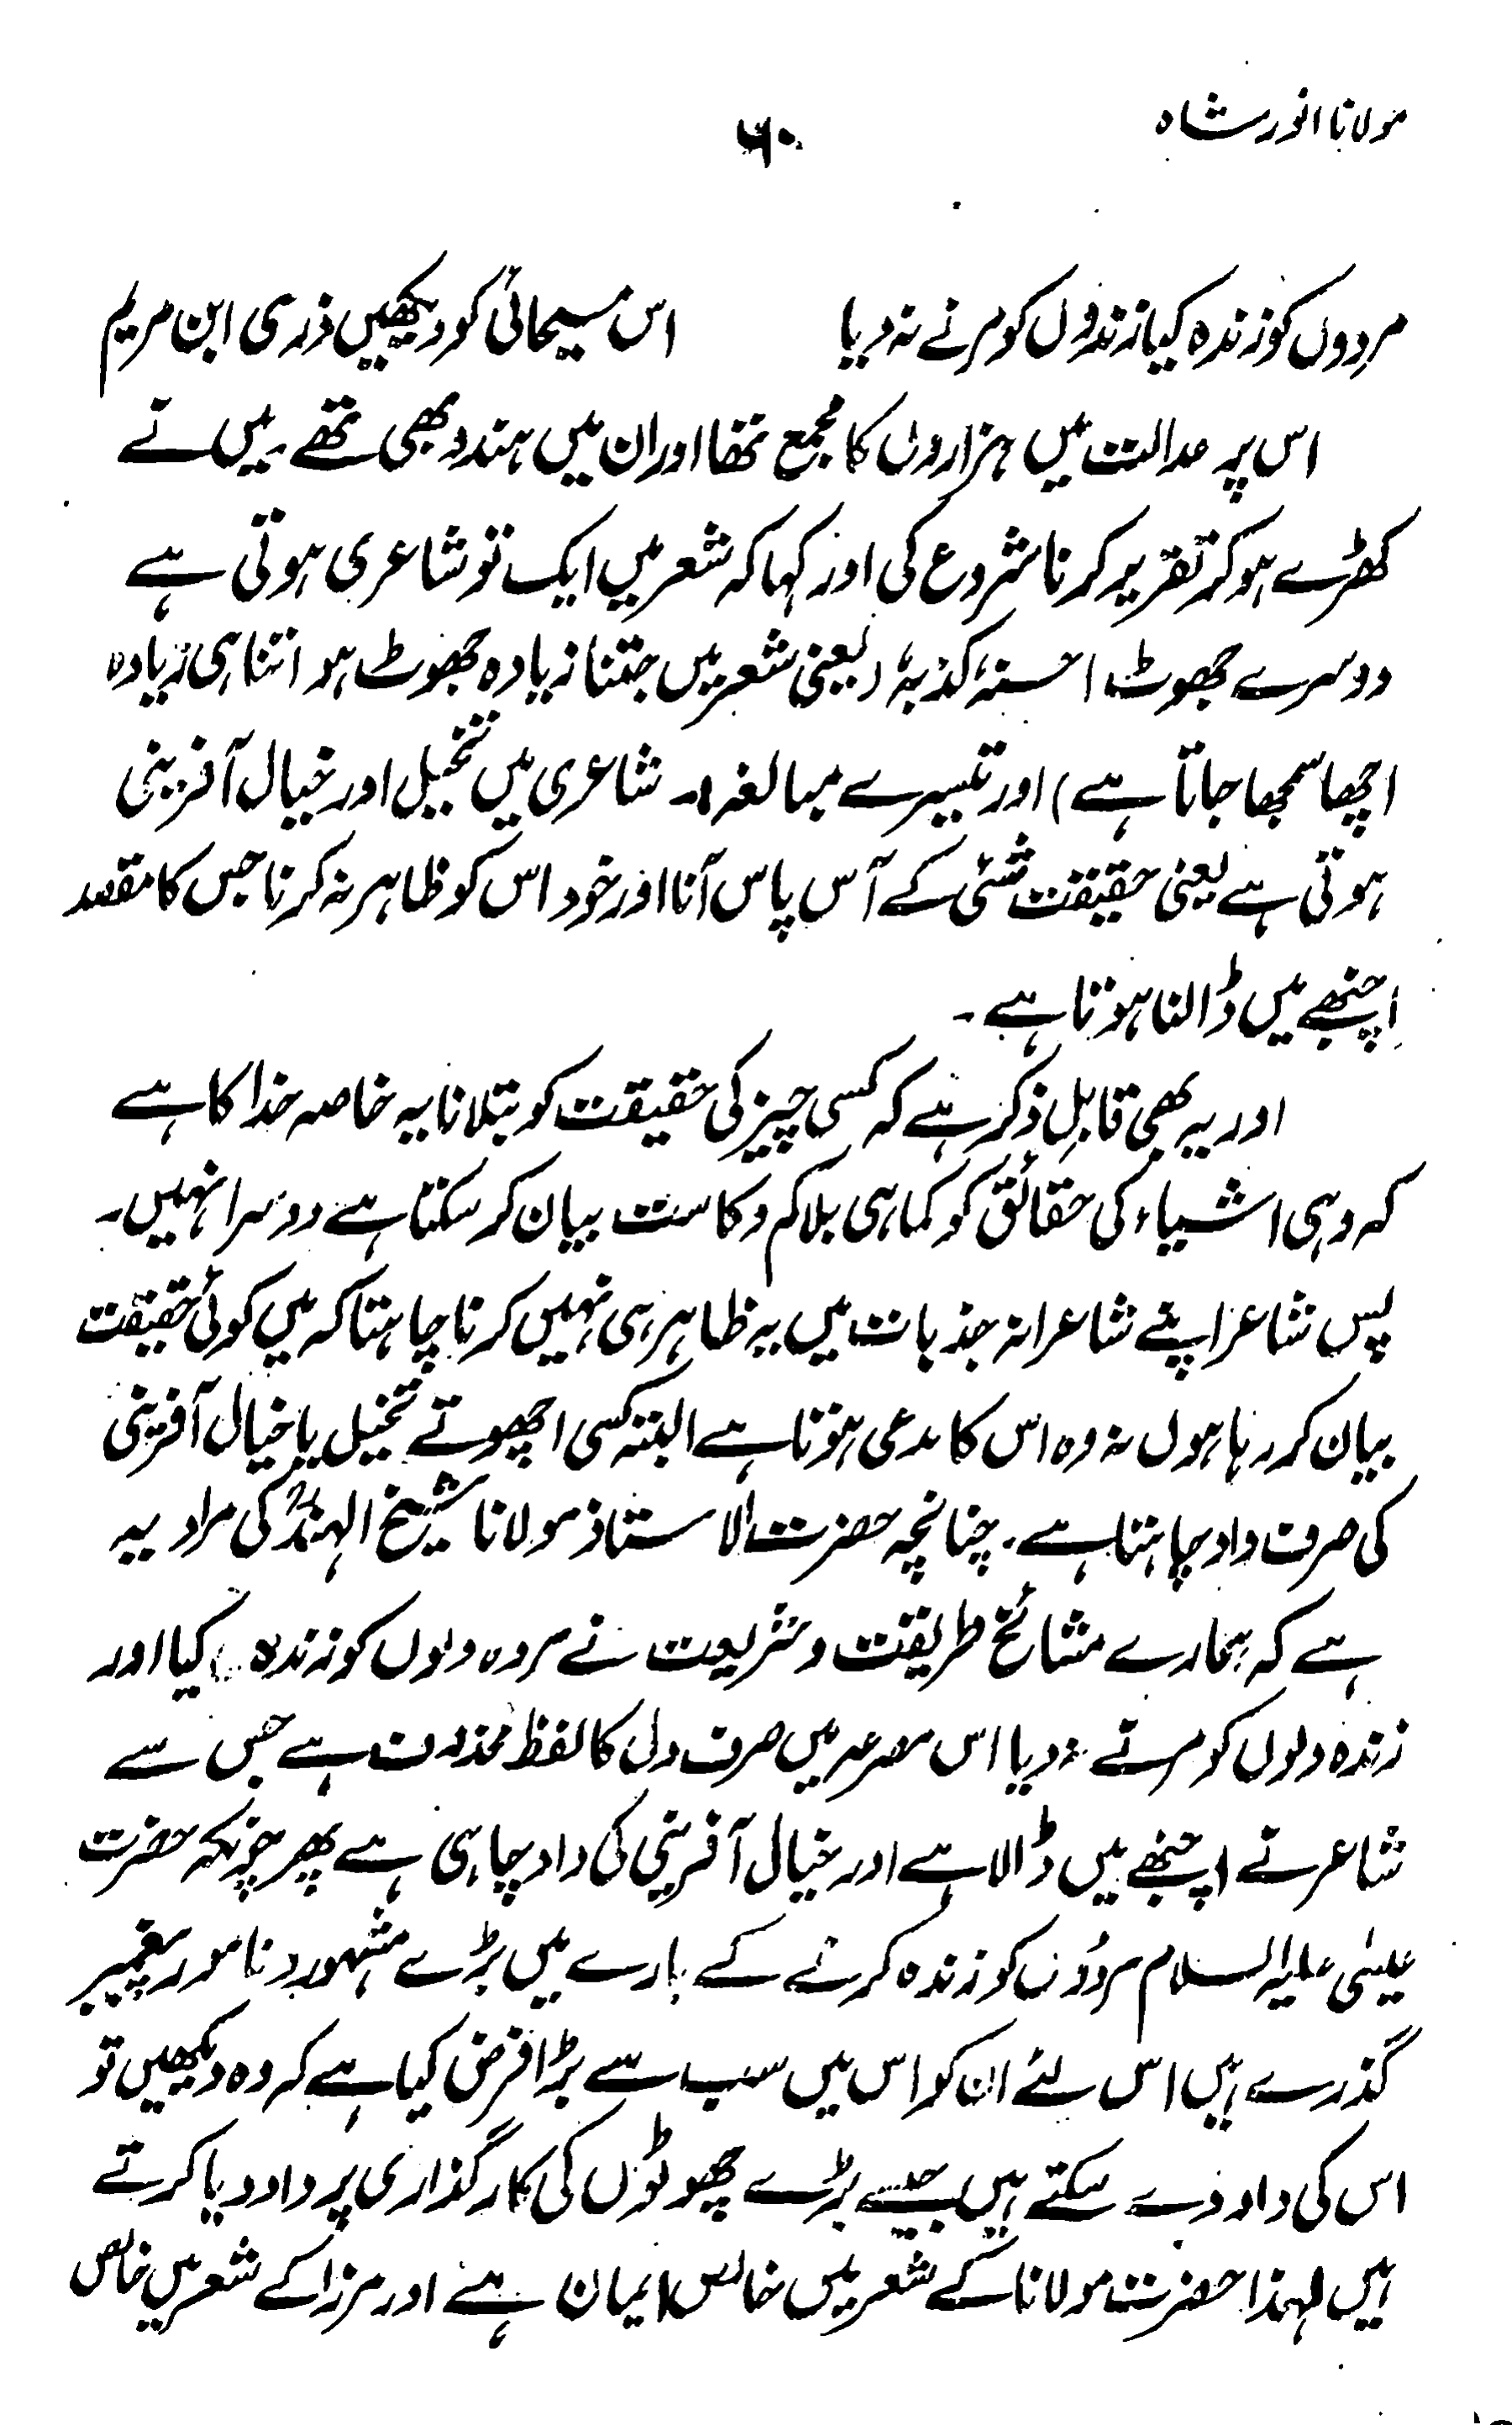 مولانا انور شاہ
۶۰
مردوں کو زندہ کیا زندوں کو مرنے نہ دیا اس مسیحائی کو دیکھیں ذری ابن مریم
اس پر عدالت میں ہزاروں کا مجمع تھا اور ان میں ہندو بھی تھے۔ میں نے
کھڑے ہو کر تقریر کرنا شروع کی اور کہا کہ شعر میں ایک تو شاعری ہوتی ہے
دوسرے جھوٹ احسنہٗ کذبہٗ (یعنی شعر میں جتنا زیادہ جھوٹ ہو اتنا ہی زیادہ
اچھا سمجھا جاتا ہے) اور تیسرے مبالغہ ۔ شاعری میں تخییل اور خیال آفرینی
ہوتی ہے یعنی حقیقت شئی کے آس پاس آنا اور خود اس کو ظاہر نہ کرنا جس کا مقصد
اچنبھے میں ڈالنا ہوتا ہے ۔
اور یہ بھی قابلِ ذکر ہے کہ کسی چیز کی حقیقت کو بتلانا یہ خاصہ خدا کا ہے
کہ وہی اشیاء کی حقائق کو کماہی بلا کم و کاست بیان کر سکتا ہے دوسرا نہیں۔
پس شاعر اپنے شاعرانہ جذبات میں یہ ظاہر ہی نہیں کرنا چاہتا کہ میں کوئی حقیقت
بیان کر رہا ہوں نہ وہ اس کا مدعی ہوتا ہے البتہ کسی اچھوتے تخیل یا خیال آفرینی
کی صرف داد چاہتا ہے۔ چنانچہ حضرت الاستاذ مولانا شیخ الہندؒ کی مراد یہ
ہے کہ ہمارے مشائخ طریقت و شریعت نے مردہ دلوں کو زندہ کیا اور
زندہ دلوں کو مرنے نہ دیا اس مصرعہ میں صرف دل کا لفظ محذوف ہے جس سے
شاعر نے اچنبھے میں ڈالا ہے اور خیال آفرینی کی داد چاہی ہے پھر چونکہ حضرت
عیسٰی علیہ السلام مردوں کو زندہ کرنے کے بارے میں بڑے مشہور و نامور پیغمبر
گذرے ہیں اس لئے ان کو اس میں سب سے بڑا فرض کیا ہے کہ وہ دیکھیں تو
اس کی داد دے سکتے ہیں جیسے بڑے چھوٹوں کی کارگذاری پر داد دیا کرتے
ہیں لہذا حضرت مولانا کے شعر میں خالص ایمان ہے اور مرزا کے شعر میں خالص